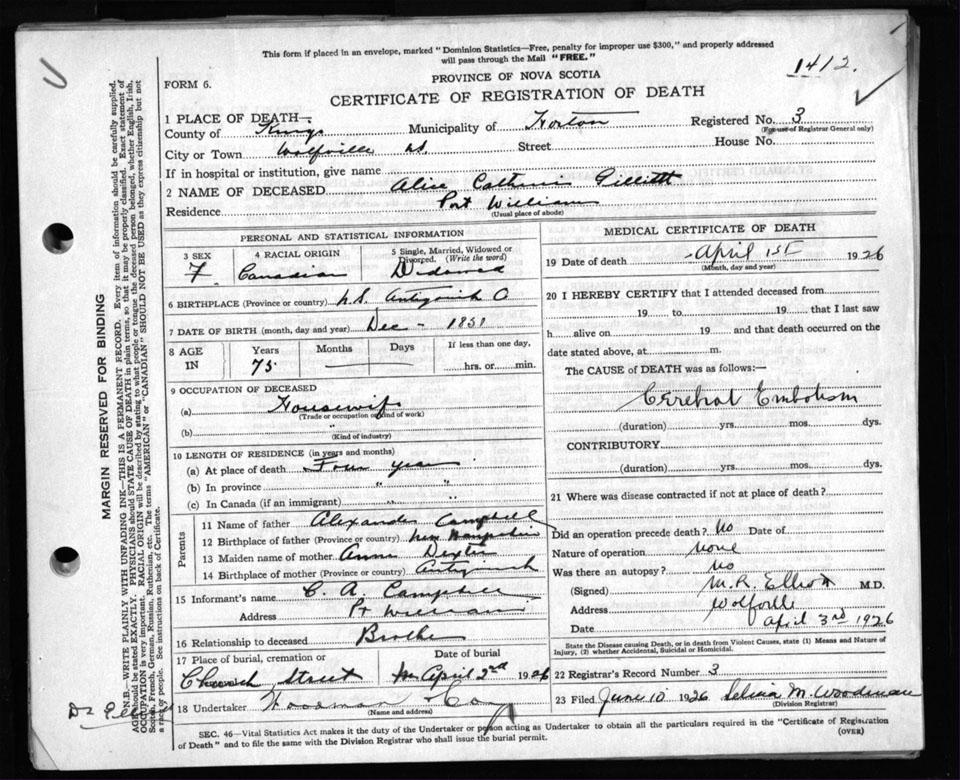 This form if placed in an envelope, marked "Dominion Statistics—Free, penalty for improper use $300," and properly addressed
will pass through the Mail "FREE."
1412.
PROVINCE OF NOVA SCOTIA
FORM 6.
CERTIFICATE OF REGISTRATION OF DEATH
1 PLACE OF DEATH—
Registered No. 3
(For use of Registrar General only)
County of Kings Municipality of Horton
City or Town Wolfville Street House No.
If in hospital or institution, give name
2 NAME OF DECEASED Alice Catherine
Residence Port William
(Usual place of abode)
PERSONAL AND STATISTICAL INFORMATION
3 SEX 4 RACIAL ORIGIN 5 Single, Married, Widowed or Divorced. (Write the word)
F. Canadian Widowed
6 BIRTHPLACE (Province or country) N.S. Antigonish
7 DATE OF BIRTH (month, day and year) Dec - 1851
8 AGE IN Years Months Days If less than one day,
75. — — hrs. or min.
9 OCCUPATION OF DECEASED
(a) Housewife
(Trade or occupation or kind of work)
(b) "
(Kind of industry)
10 LENGTH OF RESIDENCE (in years and months)
(a) At place of death Four years
(b) In province " "
(c) In Canada (if an immigrant) " "
Parents
11 Name of father Alexander Campbell
12 Birthplace of father (Province or country) New Hampshire
13 Maiden name of mother Anna Dexter
14 Birthplace of mother (Province or country) Antigonish
15 Informant's name C. A. Campbell
Address Pt William
16 Relationship to deceased Brother
17 Place of burial, cremation or Date of burial
Church Street April 2nd 1926
18 Undertaker Woodman Co
(Name and address)
MEDICAL CERTIFICATE OF DEATH
19 Date of death April 1st 1926
(Month, day and year)
20 I HEREBY CERTIFY that I attended deceased from
19 to 19 that I last saw
h alive on 19 and that death occurred on the
date stated above, at m.
The CAUSE OF DEATH was as follows:—
Cerebral Embolism
(duration) yrs. mos. dys.
CONTRIBUTORY
(duration) yrs. mos. dys.
21 Where was disease contracted if not at place of death?
Did an operation precede death? No Date of
Nature of operation None
Was there an autopsy? No
(Signed) M. R. Elliott M.D.
Address Wolfville
Date April 3rd 1926
State the Disease causing Death, or in death from Violent Causes, state (1) Means and Nature of
Injury, (2) whether Accidental, Suicidal or Homicidal.
22 Registrar's Record Number 3
23 Filed June 10 1926 Selina M. Woodman
(Division Registrar)
SEC. 46—Vital Statistics Act makes it the duty of the Undertaker or person acting as Undertaker to obtain all the particulars required in the "Certificate of Registration
of Death" and to file the same with the Division Registrar who shall issue the burial permit. (OVER)
MARGIN RESERVED FOR BINDING
N.B.—WRITE PLAINLY WITH UNFADING INK—THIS IS A PERMANENT RECORD. Every item of information should be carefully supplied.
AGE should be stated EXACTLY. PHYSICIANS should STATE CAUSE OF DEATH in plain terms, so that it may be properly classified. Exact statement of
OCCUPATION is very important. RACIAL ORIGIN will be described by stating to what people or tongue the deceased person belonged, whether English, Irish,
Scotch, French, German, Russian, Ruthenian, etc. The terms "AMERICAN" or "CANADIAN" SHOULD NOT BE USED as they express citizenship but not
a race or people. See instructions on back of Certificate.